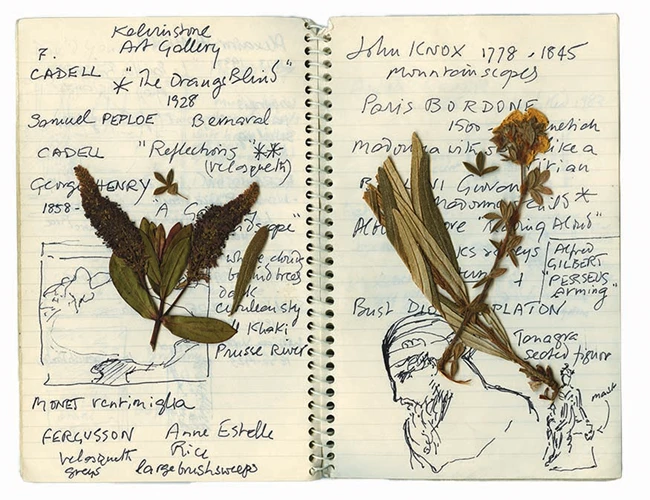 Kelvinstone
Art Gallery
7.
CADELL * "The Orange Blind"
1928
Samuel PEPLOE Bernaval
CADELL "Reflections" **
(velasqueth)
George HENRY
1858- "A
dscape"
white clouds
behind trees
dark
cerulean sky
" Khaki
Prusse River
MONET ventimiglia
FERGUSSON Anne Estelle
Rice
velasqueth
greys large brushsweeps
John KNOX 1778 - 1845
mountainscapes
Paris BORDONE
1500 - enetian
Madonna with s like a
Titian
B NI Giovan
Madonna child *
Alb ore Reading Aloud"
cks
Alfred
GILBERT
"PERSEUS
Arming"
+
Bust PLATON
Tanagra
seated figure